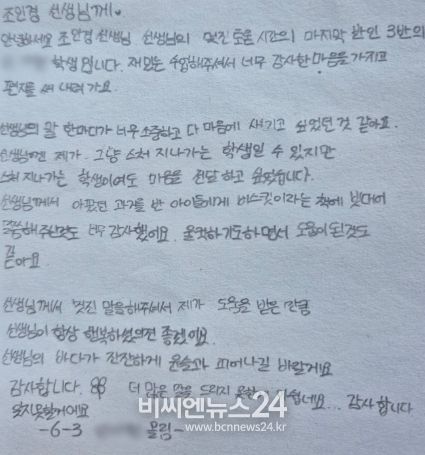 조인경 선생님께♥
안녕하세요 조인경 선생님 선생님의 멋진 도움 시간의 마지막 반인 3반의
학생입니다. 재밌는 수업해주셔서 너무 감사한 마음을 가지고
편지를 써 내려가요.
선생님의 말 한마디가 너무 소중하고 다 마음에 새기고 싶었던 것 같아요.
선생님껜 제가 그냥 스쳐 지나가는 학생일 수 있지만
스쳐 지나가는 학생이여도 마음을 전달하고 싶었습니다.
선생님께서 아팠던 과거를 반 아이들에게 비스킷이라는 책에 빗대어
말씀해주신것도 너무 감사했어요. 울컥하기도하면서 도움이 된것도
같아요
선생님께서 멋진 말을해주셔서 제가 도움을 받은 만큼
선생님이 항상 행복하셨으면 좋겠어요.
선생님의 바다가 잔잔하게 윤슬과 피어나길 바랄게요
감사합니다. 더 많은 말을 드리지 못한 아쉽네요... 감사합니다
잊지못할거에요
-6-3 올림-
비씨엔뉴스24
www.bcnnews24.kr